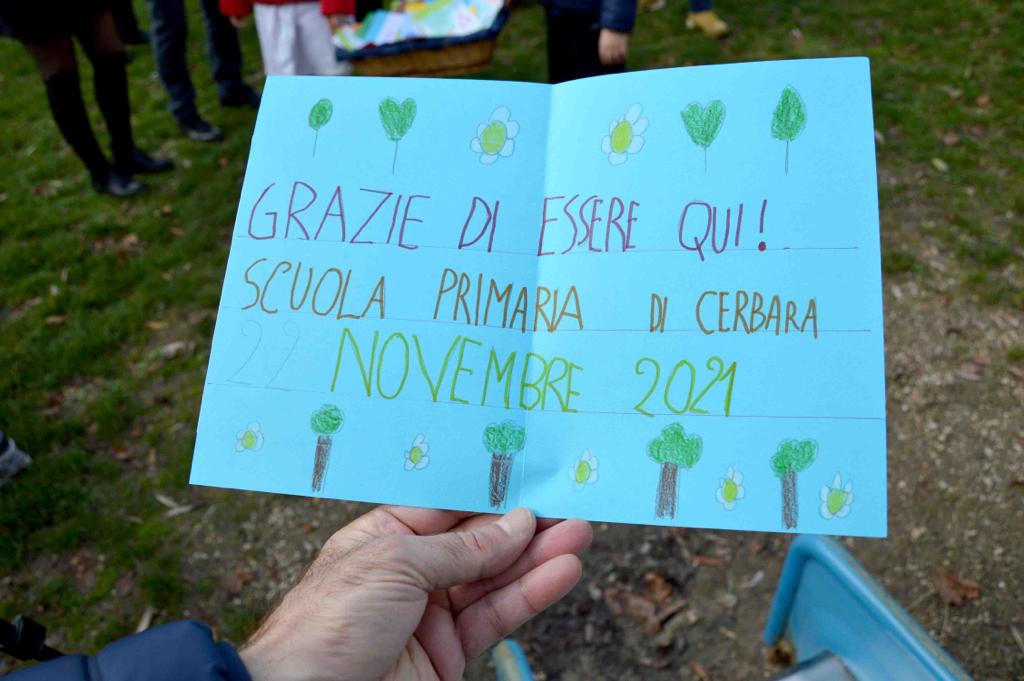 GRAZIE DI ESSERE QUI!
SCUOLA PRIMARIA DI CERBARA
22 NOVEMBRE 2021